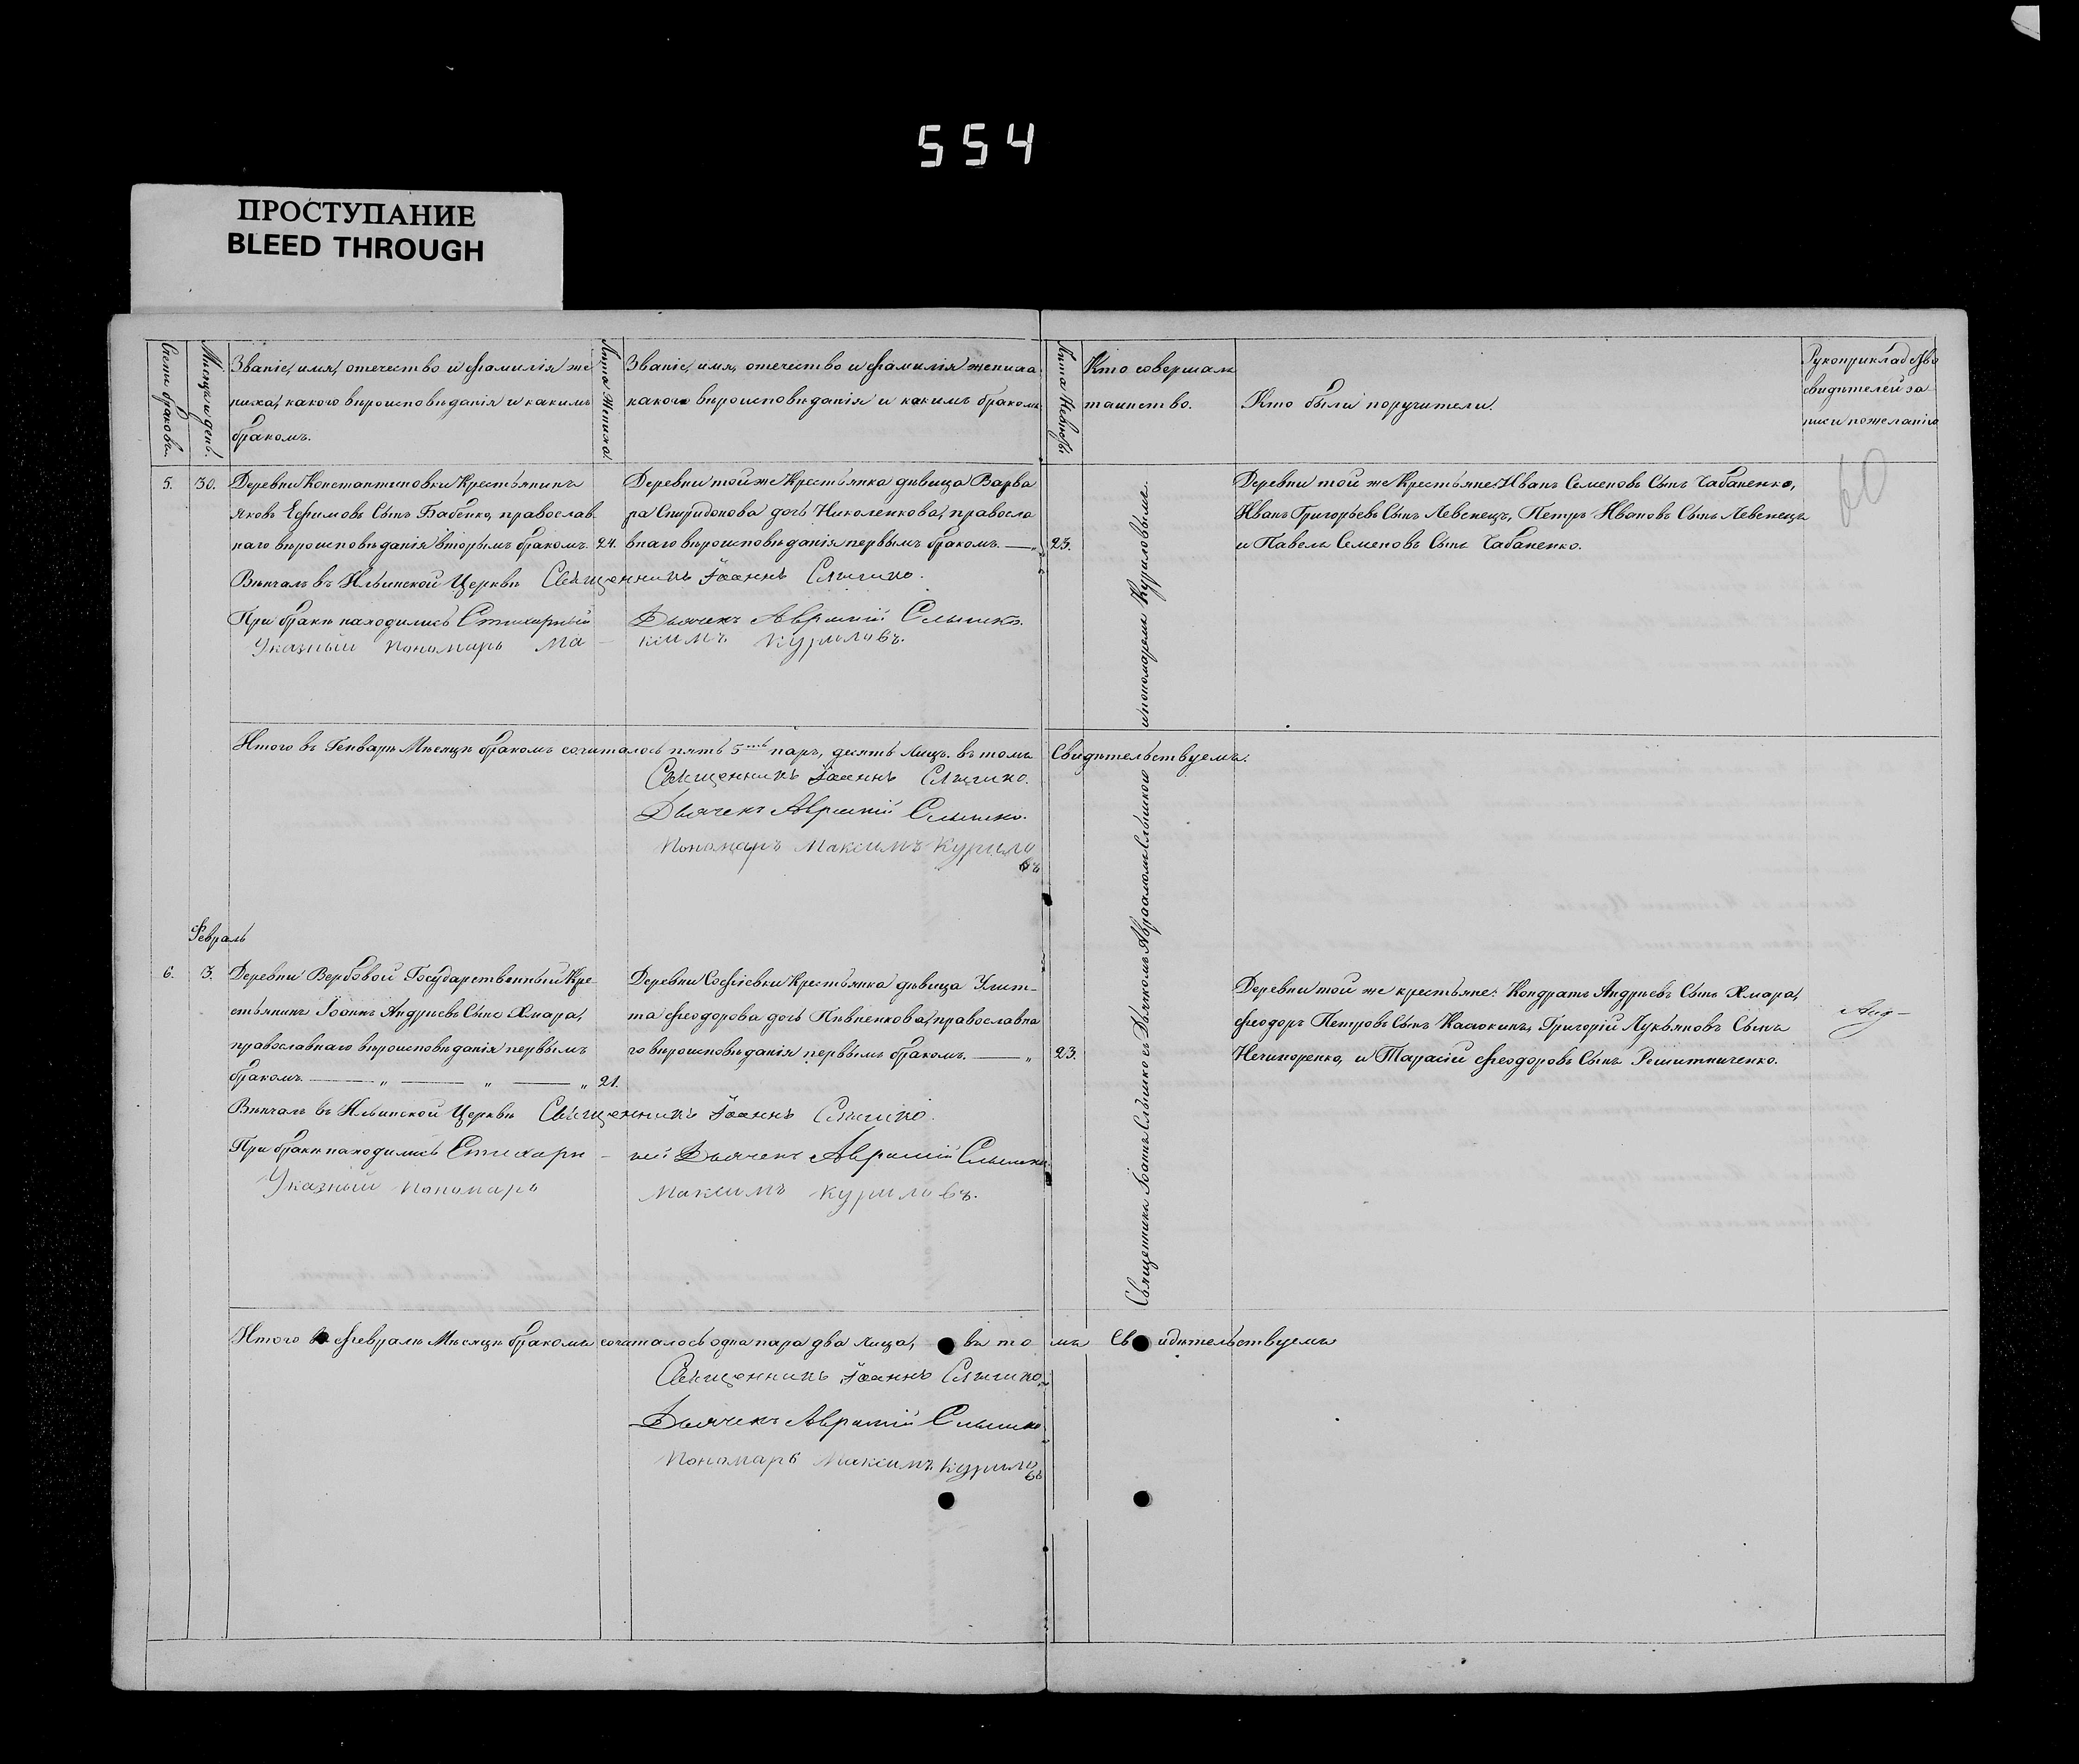 554
ПРОСТУПАНИЕ
BLEED THROUGH
Счетъ браковъ.
Мѣсяцъ и день.
Званіе, имя, отечество и фамилія же
ниха, какого вѣроисповѣданія и какимъ
бракомъ.
Лѣта Жениха.
Званіе, имя, отечество и фамилія жениха
какого вѣроисповѣданія и какимъ бракомъ
Лѣта Невѣсты
Кто совершалъ
таинство.
Кто были поручители.
Рукоприкладство
свидѣтелей за
писи по желанію
5. 30. Деревни Константиновки Крестьянинъ
Яковъ Ефимовъ Сынъ Бабенко, православ
наго вѣроисповѣданія вторымъ бракомъ. 24.
Деревни той же Крестьянка дѣвица Варва
ра Спиридонова дочь Николенкова, правосла
внаго вѣроисповѣданія первымъ бракомъ. — „ 23.
Деревни той же Крестьяне: Иванъ Семеновъ Сынъ Чабаненко,
Иванъ Григорьевъ Сынъ Левенецъ, Петръ Ивановъ Сынъ Левенецъ
и Павелъ Семеновъ Сынъ Чабаненко.
60
Вѣнчалъ въ Ильинской Церквѣ Священникъ Іоаннъ
При бракѣ находились Стихарный Дьячекъ Аврамій
Указный Пономарь Ма – ксимъ Куриловъ.
Итого въ Генварѣ Мѣсяцѣ бракомъ сочиталось пять 5ть паръ, десять лицъ. въ томъ Свидѣтельствуемъ.
Священникъ Іоаннъ
Дьячекъ Аврамій
Пономарь Максимъ Курило
въ
Февраль
6. 3. Деревни Вербовой Государственный Кре-
стьянинъ Іоаннъ Андреевъ Сынъ Хмара,
православнаго вѣроисповѣданія первымъ
бракомъ. — „ — „ — „ 21.
Деревни Софіевки Крестьянка дѣвица Улит-
та Феодорова дочь Пивненкова, православна
го вѣроисповѣданія первымъ бракомъ. — „ 23.
Деревни той же крестьяне: Кондратъ Андреевъ Сынъ Хмара,
Феодоръ Петровъ Сынъ Касюкинъ, Григорій Лукьяновъ Сынъ
Нечипоренко, и Тарасій Феодоровъ Сынъ Решитниченко.
Вѣнчалъ въ Ильинской Церквѣ Священникъ Іоаннъ
При бракѣ находились Стихарн – ый Дьячекъ Аврамій
Указный Пономарь Максимъ Куриловъ.
Священникъ Іоаннъ съ Дьячкомъ и пономаремъ Куриловымъ.
Итого въ Февралѣ Мѣсяцѣ бракомъ сочиталось одна пара два лица, въ то мъ Свидѣтельствуемъ
Священникъ Іоаннъ
Дьячекъ Аврамій
Пономарь Максимъ Курило
въ